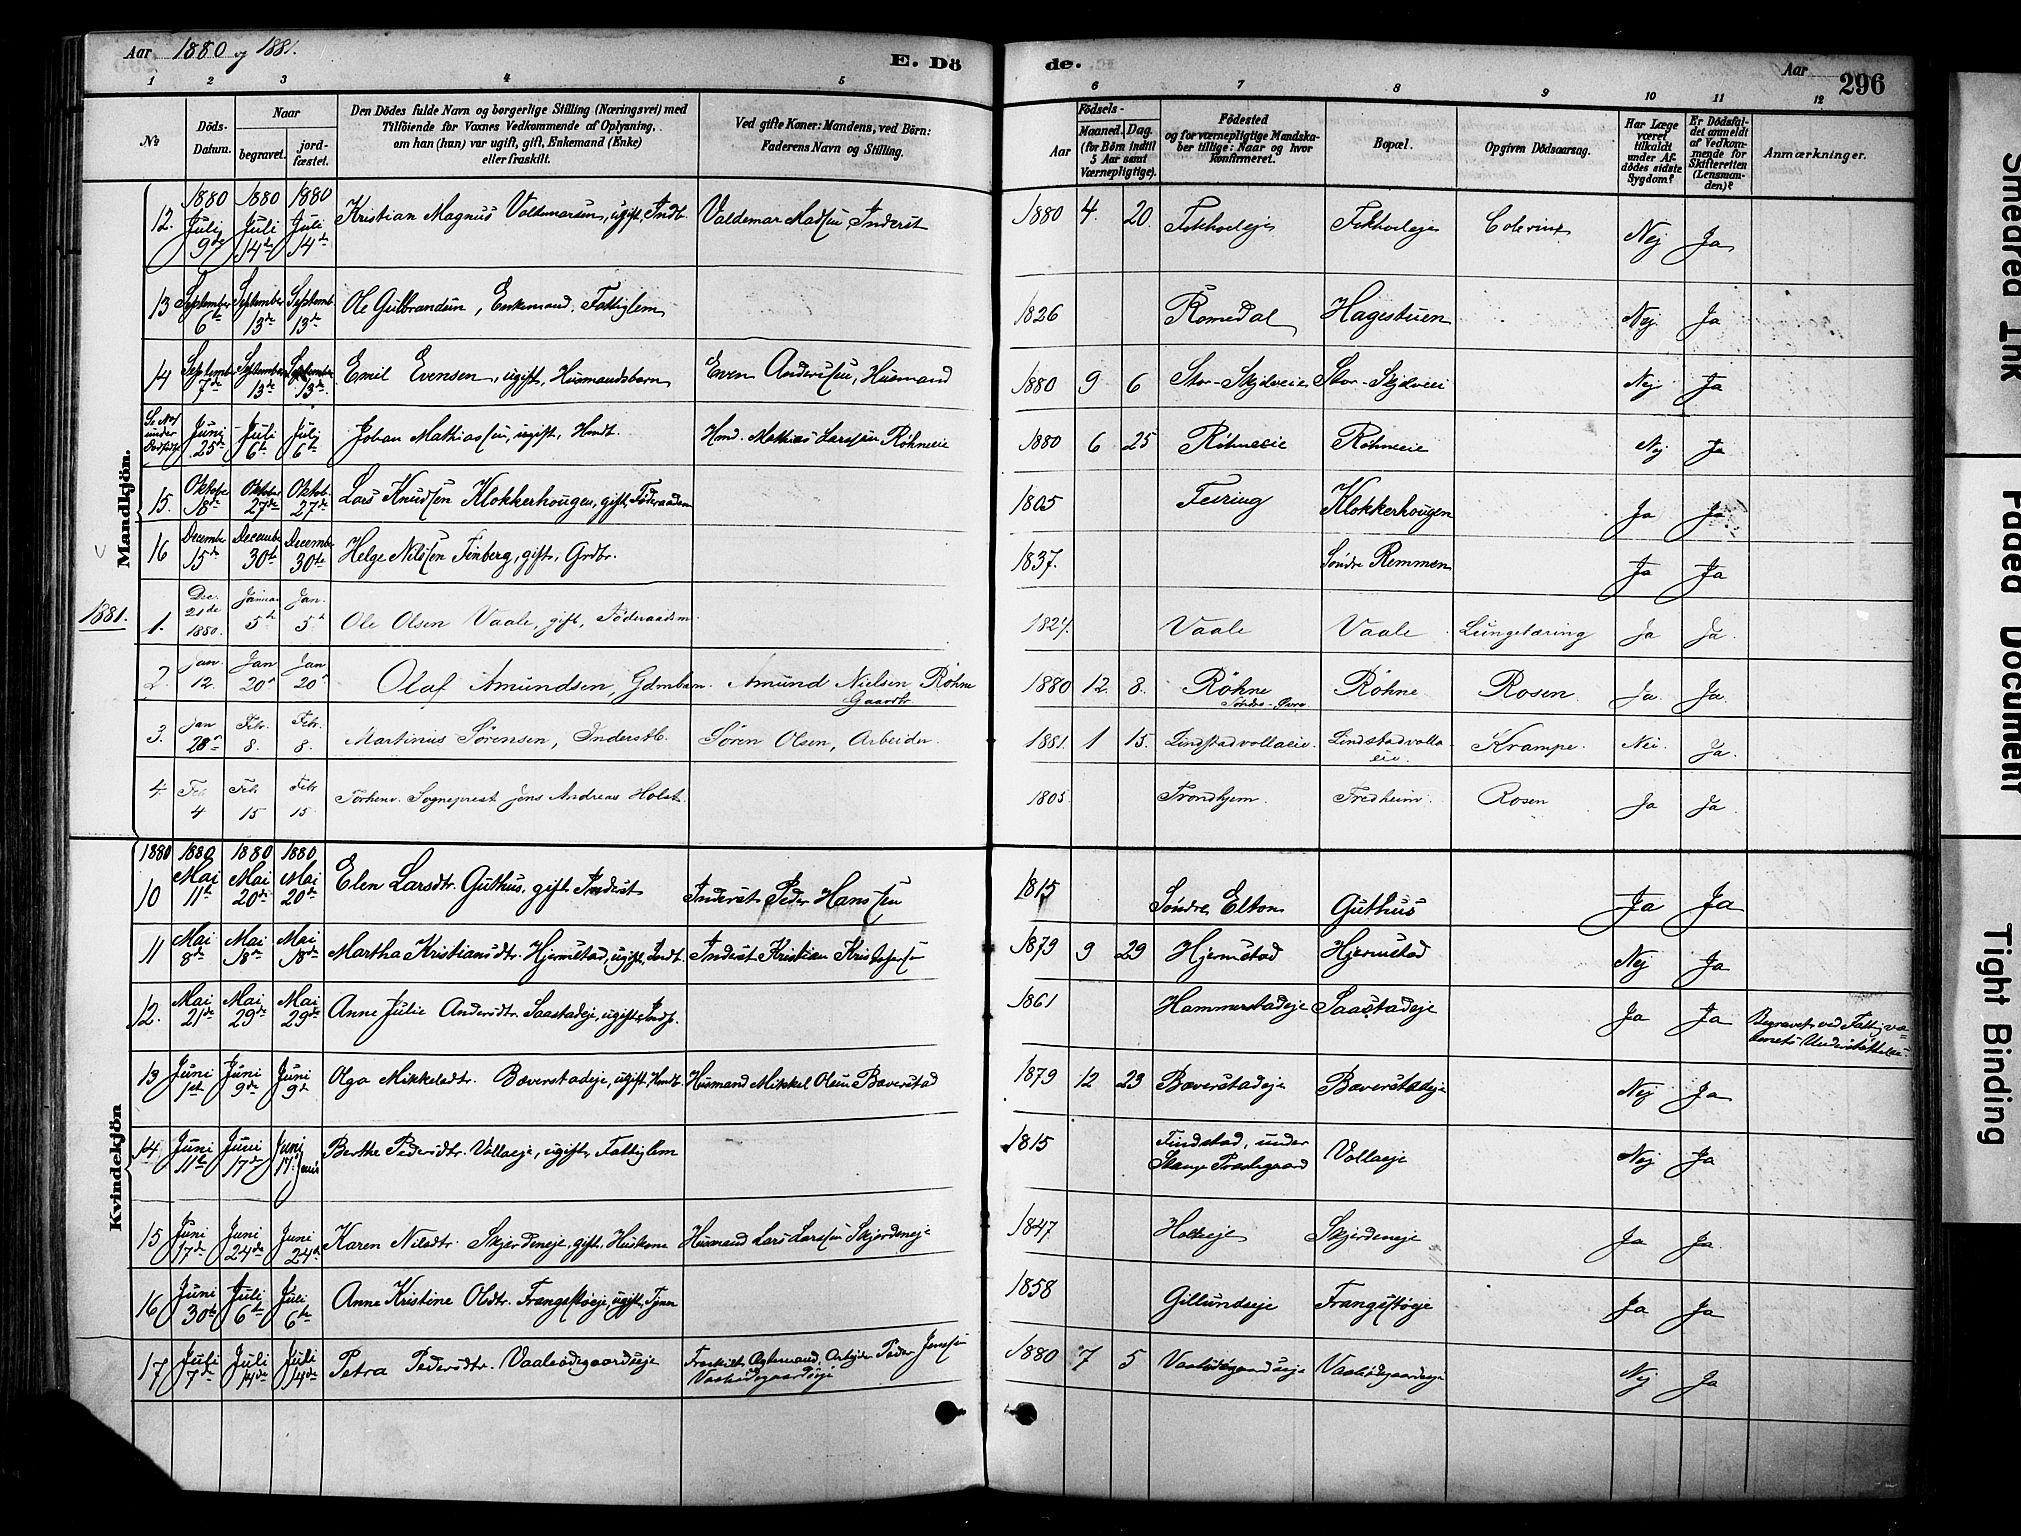 Aar 1880 og 1881.
E. Dö de.
Aar 296
1 2 3 4 5 6 7 8 9 10 11 12
No
Döds-Datum.
Naar
begravet. jordfæstet.
Den Dödes fulde Navn og borgerlige Stilling (Næringsvei) med
Tilföiende for Voxnes Vedkommende af Oplysning,
om han (hun) var ugift, gift, Enkemand (Enke)
eller fraskilt.
Ved gifte Koner: Mandens, ved Börn:
Faderens Navn og Stilling.
Födsels-
Aar Maaned. Dag.
(for Börn indtil
5 Aar samt
Værnepligtige).
Födested
og for værnepligtige Mandskaber tillige: Naar og hvor
konfirmeret.
Bopæl.
Opgiven Dödsaarsag.
Har Læge været tilkaldt under Afdödes sidste Sygdom?
Er Dödsfaldet anmeldt af Vedkommende for Skifteretten (Lensmanden)?
Anmærkninger.
Mandkjön.
1880 1880 1880
12. Juli 9de Juli 14de Juli 14de Kristian Magnus Valdemarsen, ugift, Indb. Valdemar Madsen Inderst 1880 4. 20. Nej Ja
13 September 6te September 13de Septemb 13de Ole Gulbrandsen, Enkemand, Fattiglem 1826 Romedal Hagestuen Nej Ja
14 Septemb 7de September 13de September 13de Emil Evensen, ugift, Husmandsbarn Even Andersen, Husmand 1880 9 6 Stor-Skjelveie Stor-Skjelveie Nej Ja
Juni 25de Juli 6te Juli 6te Johan Mathiassen, ugift, Hmdt. Hmd. Mathias Larssen Röhneeie 1880 6 25 Röhneeie Röhneeie Nej Ja
15. Oktober 18de Oktober 27de Oktob. 27de Lars Knudsen Klokkerhougen, gift, Föderaadsm 1805 Feiring Klokkerhougen Ja Ja
16 December 15de December 30te December 30te Helge Nilssen Finberg, gift, Grdbr. 1837. Söndre Remmen Ja Ja
1881.
1. Dec. 21de 1880. Januar 5te Jan. 5te Ole Olsen Vaale, gift, Föderaadsm. 1824. Vaale Vaale Lungetæring Ja Ja
2. Jan. 12. Jan 20n Jan 20n Olaf Amundsen, Gdmbarn. Amund Nielsen Röhne Gaardbr. 1880 12. 8. Röhne Söndre-Övre Röhne Rosen Ja Ja.
3. Jan 28n Febr. 8. Febr. 8. Martinus Sörensen, Inderstb. Sören Olsen, Arbeider. 1881. 1 15. Lindstadvollaeie. Lindstadvollaeie. Krampe. Nei. Ja.
4. Feb 4 Febr 15 Febr 15 Forhenv. Sogneprest Jens Andreas Holst 1805. Trondhjem. Fredheim. Rosen Ja Ja.
Kvindekjön
1880 1880 1880 1880
10 Mai 11te Mai 20de Mai 20de Elen Larsdtr. Guthus, gift Inderst Inderst Peder Hanssen 1815 Söndre Elton Guthus Ja Ja
11 Mai 8de Mai 18de Mai 18de Martha Kristiansdtr. Hjermstad, ugift, Indt. Inderst Kristian Kristofersen 1879 9 29 Hjermstad Hjermstad Nej Ja
12. Mai 21de Mai 29de Mai 29de Anne Julie Andersdtr. Saastadeje, ugift, Inds. 1861 Hammerstadeje Saastadeje Ja Ja Begravet ved Fattigvæsenets Understöttelse.
13 Juni 1ste Juni 9de Juni 9de Olga Mikkelsdtr. Bæverstadeje, ugift Hmdt. Husmand Mikkel Olsen Bæverstad 1879 12 23 Bæverstadeje Bæverstadeje Nej Ja
14 Juni 11te Juni 17de Juni 17. Juni Berthe Pedersdtr. Vollaeje, ugift, Fattiglem 1815 Findstad, under Stange Præstegaard Vollaeje Nej Ja
15 Juni 17de Juni 24de Juni 24de Karen Nilsdtr. Skjerdeneje, gift, Huskone Husmand Lars Larssen Skjerdeneje 1847 Holteeje Skjerdeneje Ja Ja
16 Juni 30te Juli 6te Juli 6te Anne Kristine Olsdtr. Frangstöeje, ugift, Tjen 1858 Gillundseje Frangstöeje Ja Ja
17 Juli 7de Juli 14de Juli 14de Petra Pedersdtr. Vaaleödegaardseje Fraskilt Ægtemand, Arbeider Peder Jensen Vaaleödegaardseje 1880 7 5 Vaaleödegaardseje Vaaleödegaardseje Nej Ja
Smeared Ink
Faded Document
Tight Binding